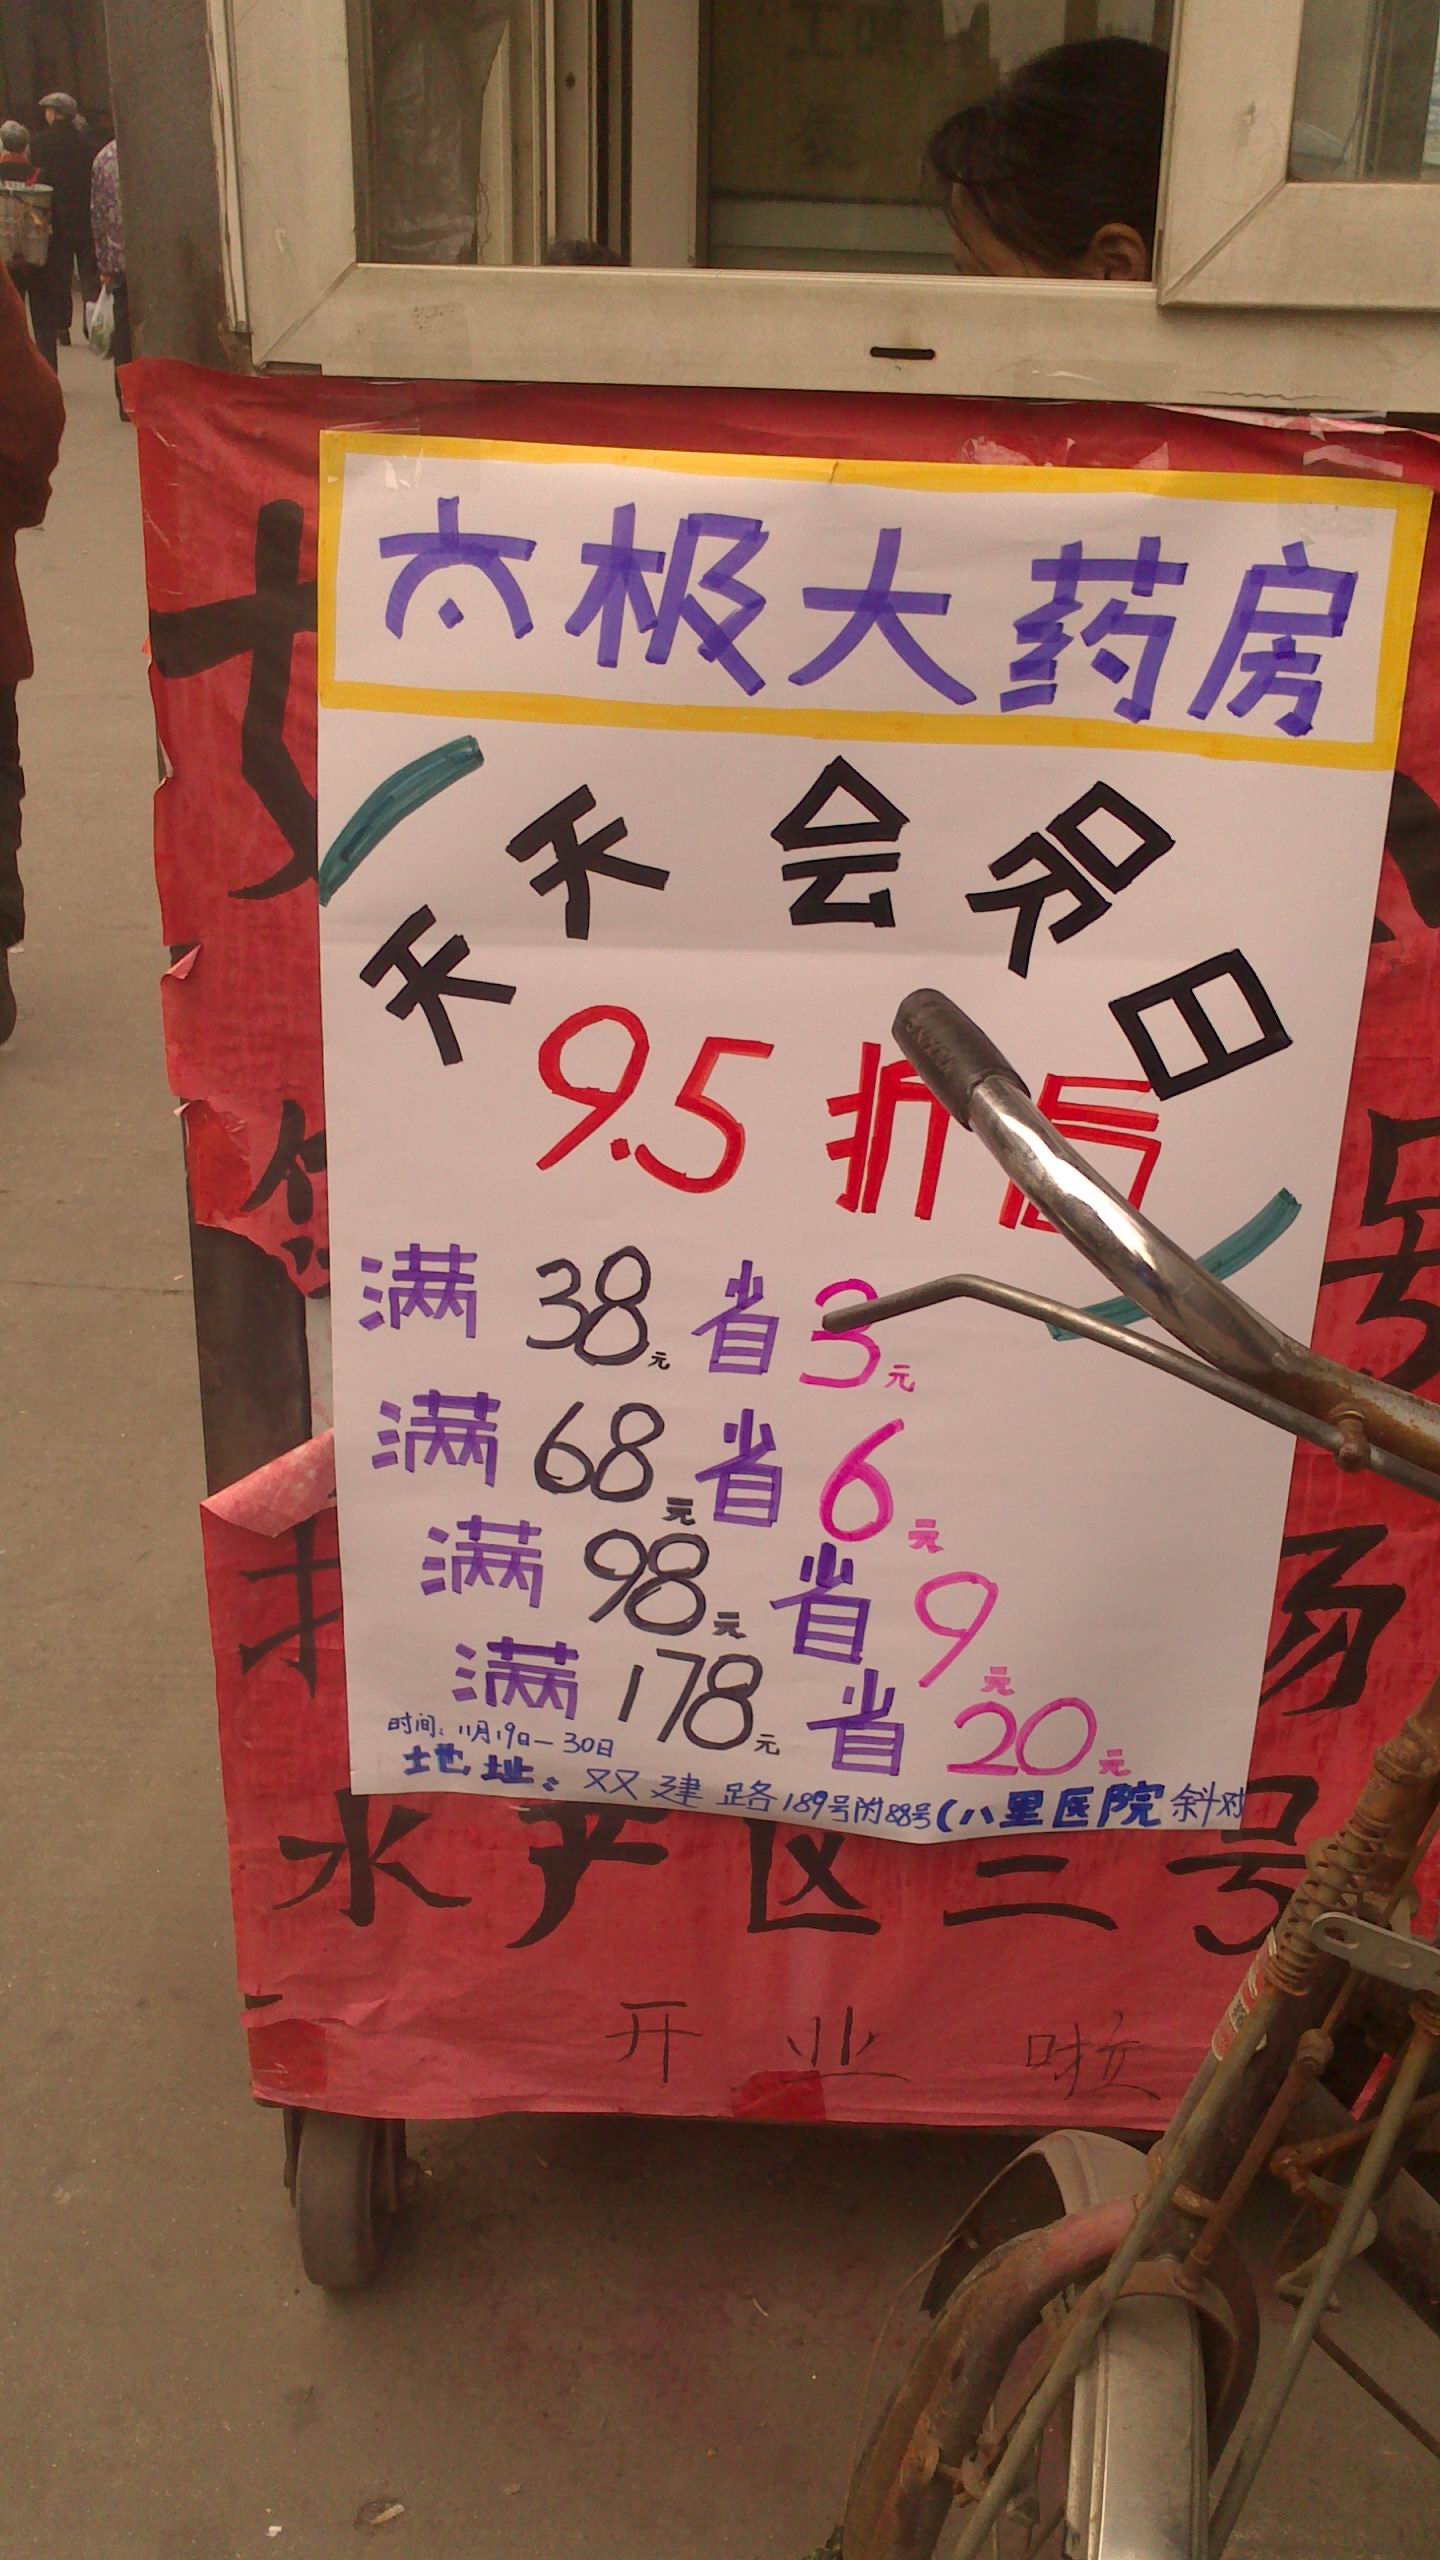 太极大药房
天天会员日
9.5折后
满38元省3元
满68元省6元
满98元省9元
满178元省20元
时间:11月19日—30日
地址:双建路189号附88号(八里医院斜对
水产区二号
开业啦